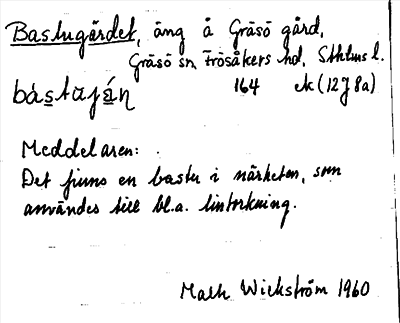 Bastugärdet, äng å Gräsö gård,
Gräsö sn Frösåkers hd, Sthlms l.
164 ek (12J 8a)
bàstaján
Meddelaren:
Det finns en bastu i närheten, som
användes till bl.a. lintorkning.
Math Wickström 1960